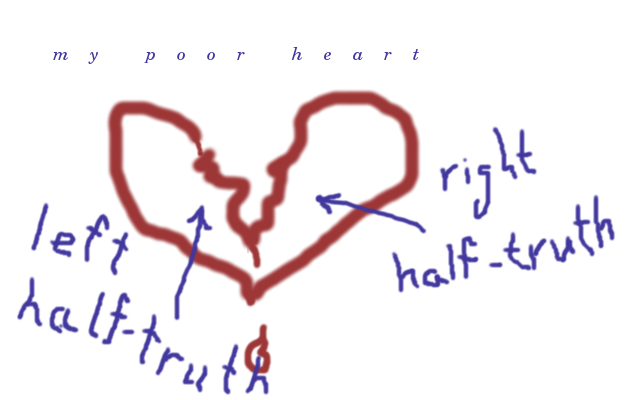 my poor heart
left
half-truth
right
half-truth